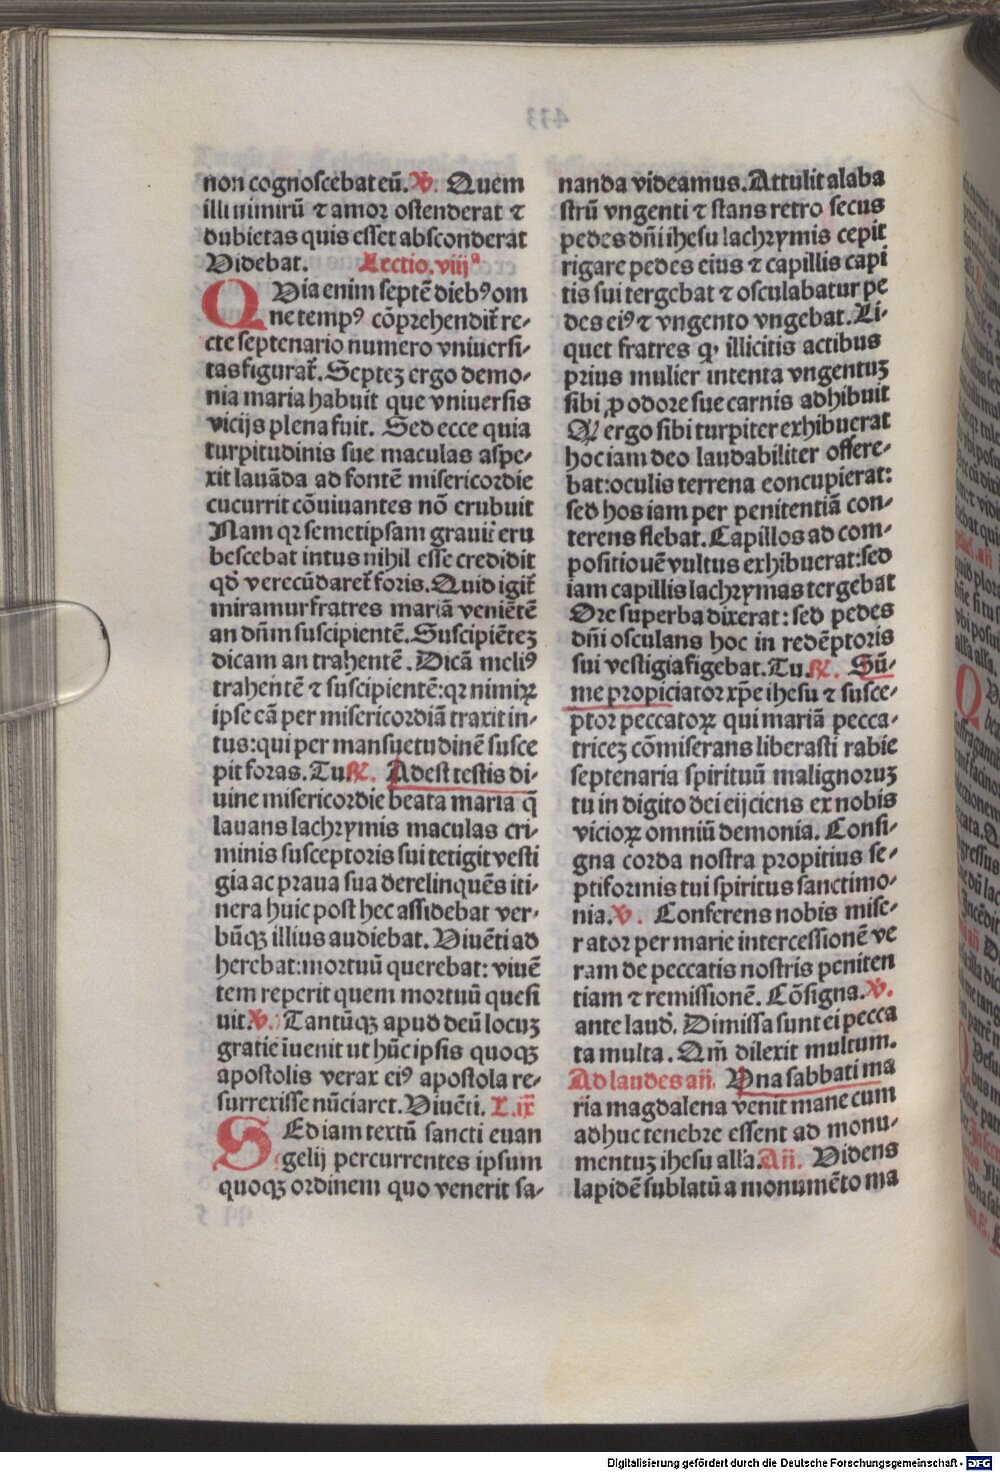 non cognoscebat eū. ℣. Quem
illi nimirū ⁊ amor ostenderat ⁊
dubietas quis esset absconderat
Videbat. Lectio. viijª
QVia enim septē diebꝰ om
ne tempꝰ cōprehendit̃ re⸗
cte septenario numero vniuersi⸗
tas figurat̃. Septeꝫ ergo demo⸗
nia maria habuit que vniuersis
vicijs plena fuit. Sed ecce quia
turpitudinis sue maculas aspe⸗
xit lauāda ad fontē misericordie
cucurrit cōuiuantes nō erubuit
Nam qꝛ semetipsam grauit̃ eru
bescebat intus nihil esse credidit
qđ verecūdaret̃ foris. Quid igit̃
miramur fratres mariā veniētē
an dn̄m suscipientē. Suscipiēteꝫ
dicam an trahentē. Dicā meliꝰ
trahentē ⁊ suscipientē: qꝛ nimiꝝ
ipse eā per misericordiā traxit in⸗
tus: qui per mansuetudinē susce
pit foras. Tu ℟. Adest testis di⸗
uine misericordie beata maria q̄
lauans lachrymis maculas cri⸗
minis susceptoris sui tetigit vesti
gia ac praua sua derelinquēs iti⸗
nera huic post hec assidebat ver⸗
būqꝫ illius audiebat. Viuēti ad
herebat: mortuū querebat: viuē
tem reperit quem mortuū quesi
uit. ℣. Tantūqꝫ apud deū locuꝫ
gratie īuenit ut hūc ipsis quoqꝫ
apostolis verax eiꝰ apostola re⸗
surrexisse nūciaret. Viuēti. L. ix
SEd iam textū sancti euan
gelij percurrentes ipsum
quoqꝫ ordinem quo venerit sa⸗
nanda videamus. Attulit alaba
strū vngenti ⁊ stans retro secus
pedes dn̄i ihesu lachrymis cepit
rigare pedes eius ⁊ capillis capi
tis sui tergebat ⁊ osculabatur pe
des eiꝰ ⁊ vngento vngebat. Li⸗
quet fratres ꝙ illicitis actibus
prius mulier intenta vngentuꝫ
sibi ꝓ odore sue carnis adhibuit
Qđ ergo sibi turpiter exhibuerat
hoc iam deo laudabiliter offere⸗
bat: oculis terrena concupierat:
sed hos iam per penitentiā con⸗
terens flebat. Capillos ad com⸗
positionē vultus exhibuerat: sed
iam capillis lachrymas tergebat
Ore superba dixerat: sed pedes
dn̄i osculans hoc in redēptoris
sui vestigia figebat. Tu. ℟. Sū⸗
me propiciator xp̄e ihesu ⁊ susce⸗
ptor peccatoꝝ qui mariā pecca⸗
triceꝫ cōmiserans liberasti rabie
septenaria spirituū malignoruꝫ
tu in digito dei eijciens ex nobis
vicioꝝ omniū demonia. Consi⸗
gna corda nostra propitius se⸗
ptiformis tui spiritus sanctimo⸗
nia. ℣. Conferens nobis mise⸗
rator per marie intercessionē ve
ram de peccatis nostris peniten
tiam ⁊ remissionē. Cōsigna. ℣.
ante laud̓. Dimissa sunt ei pecca
ta multa. Qm̄ dilexit multum.
Ad laudes añ. Vna sabbati ma
ria magdalena venit mane cum
adhuc tenebre essent ad monu⸗
mentuꝫ ihesu all̓a. Añ. Videns
lapidē sublatū a monumēto ma
Digitalisierung gefördert durch die Deutsche Forschungsgemeinschaft - DFG